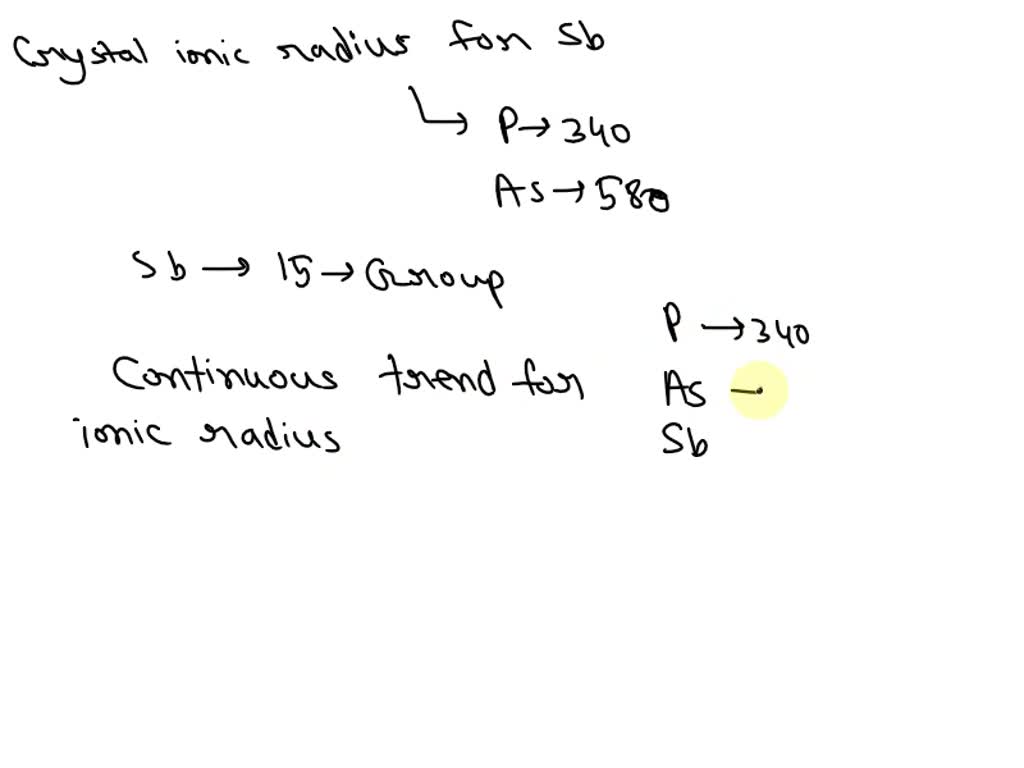 Crystal ionic radius for Sb
↳ P → 340
As → 580
Sb → 15 → Group
P → 340
Continuous trend for As –
ionic radius Sb